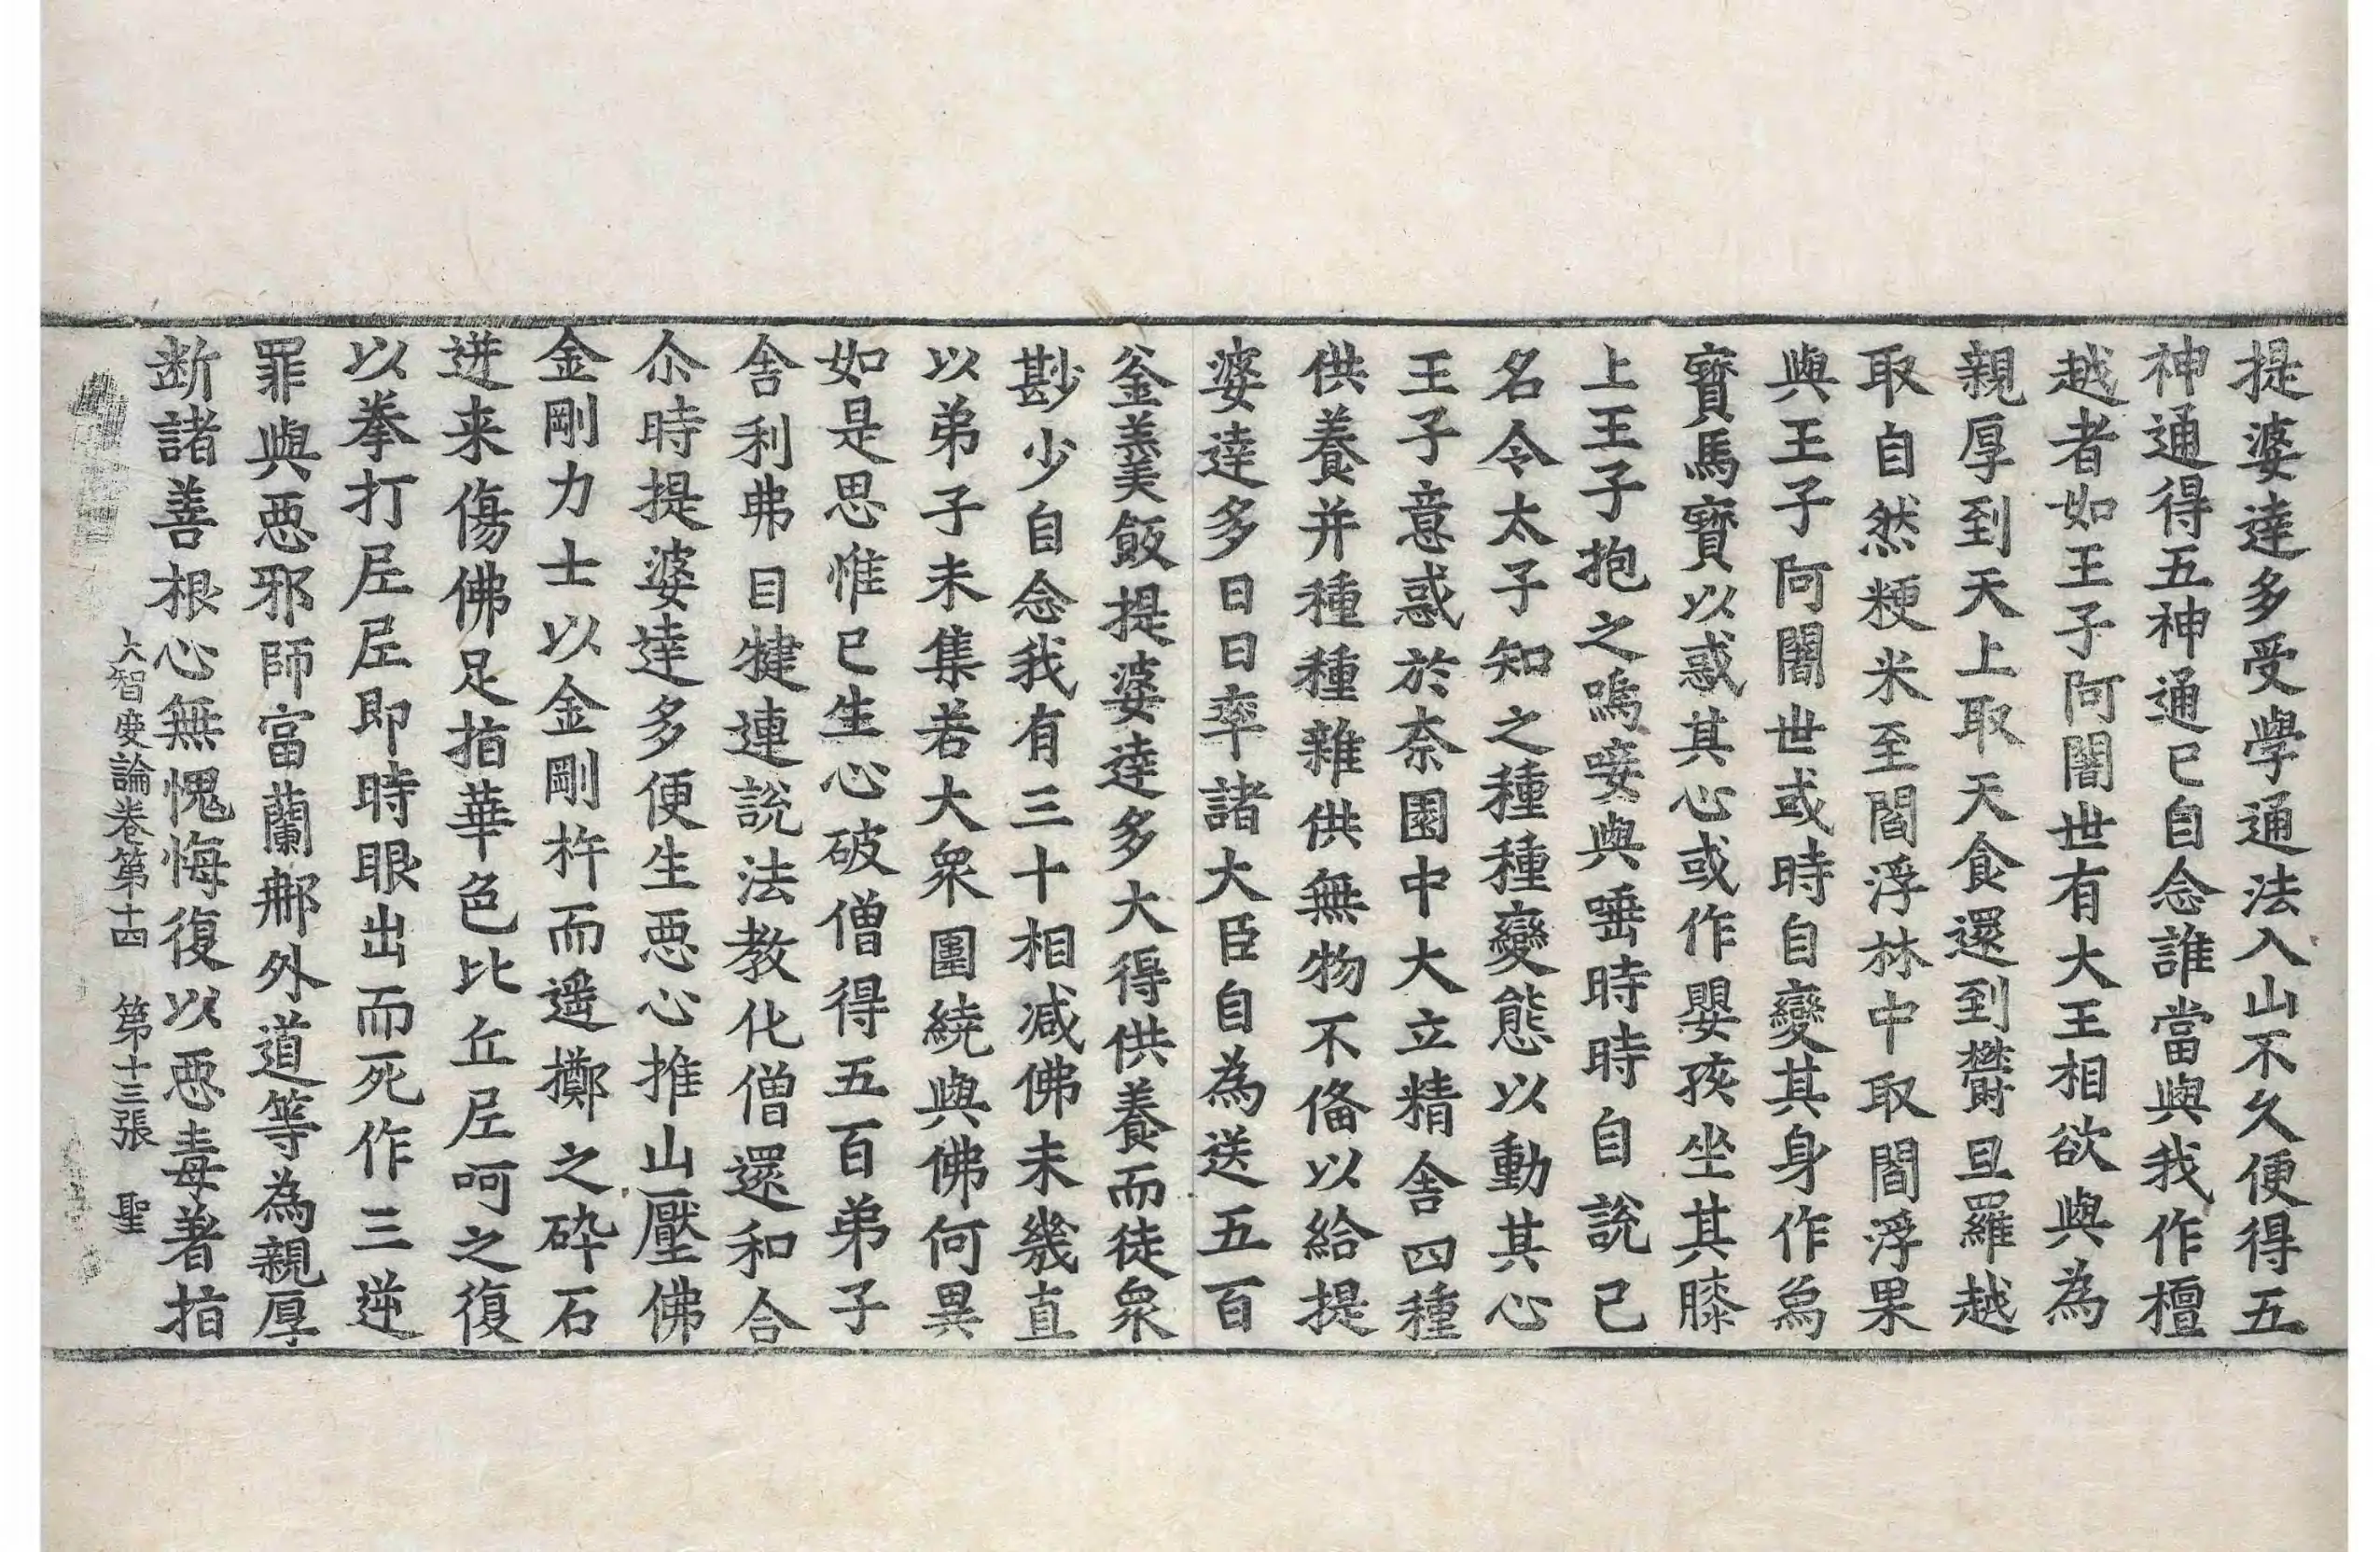 提婆達多受學通法入山不久便得五
神通得五神通已自念誰當與我作檀
越者如王子阿闍世有大王相欲與為
親厚到天上取天食還到欝旦羅越
取自然粳米至閻浮林中取閻浮果
與王子阿闍世或時自變其身作為
寶馬寶以惑其心或作嬰孩坐其膝
上王子抱之嗚㖶與唾時時自說己
名令太子知之種種變態以動其心
王子意惑於柰園中大立精舍四種
供養并種種雜供無物不俻以給提
婆達多日日率諸大臣自為送五百
釜羹飯提婆達多大得供養而徒衆
尠少自念我有三十相減佛未幾直
以弟子未集若大衆圍繞與佛何異
如是思惟已生心破僧得五百弟子
舍利弗目犍連說法教化僧還和合
尒時提婆達多便生惡心推山壓佛
金剛力士以金剛杵而遥擲之碎石
迸来傷佛足指華色比丘尼呵之復
以拳打尼尼即時眼出而死作三逆
罪與惡邪師富蘭那外道等為親厚
斷諸善根心無愧悔復以惡毒著指
大智度論卷第十四 第十三張 聖